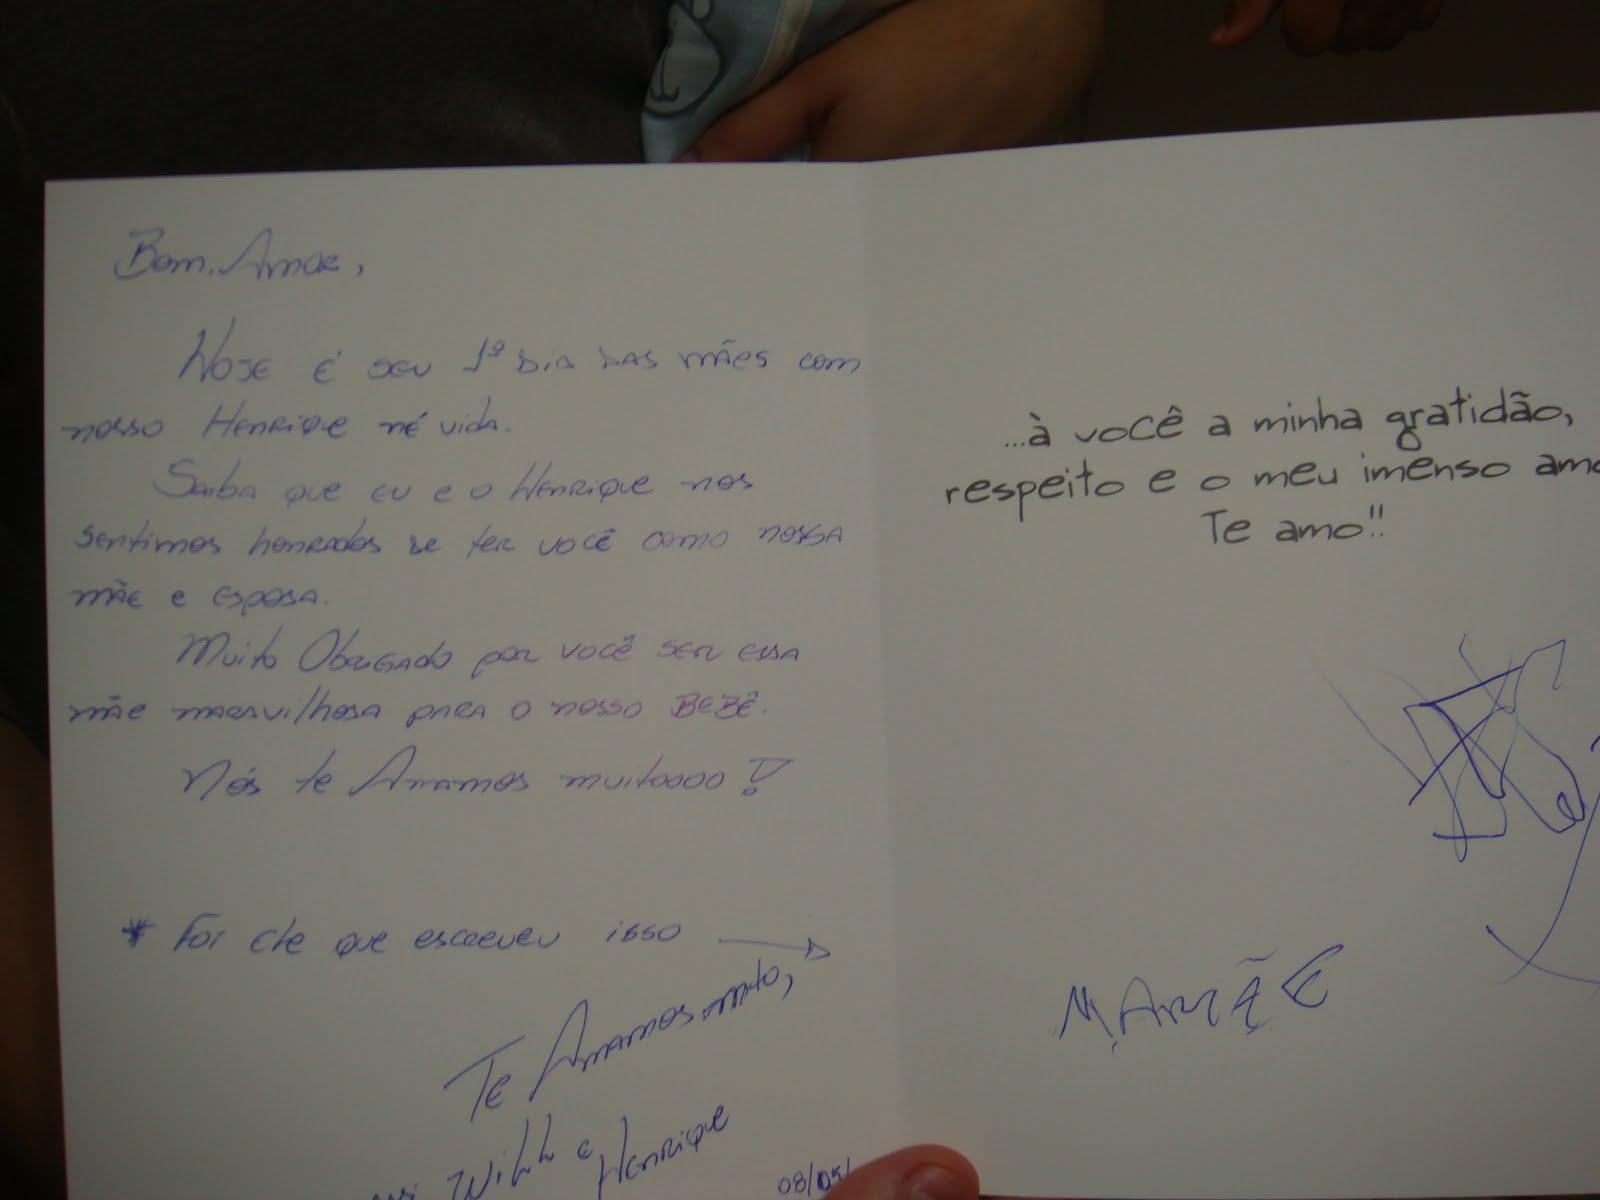 Bom, Amor,
Hoje é seu 1º dia das mães com
nosso Henrique né vida.
Saiba que eu e o Henrique nos
sentimos honrados se ter você como nossa
mãe e esposa.
Muito Obrigado por você ser essa
mãe maravilhosa para o nosso BEBÊ.
Nós te Amamos muitoooo!
* Foi ele que escreveu isso
Te Amamos muito,
Will e
Henrique
08/05/
...à você a minha gratidão,
respeito e o meu imenso amo
Te amo!!
MAMÃE